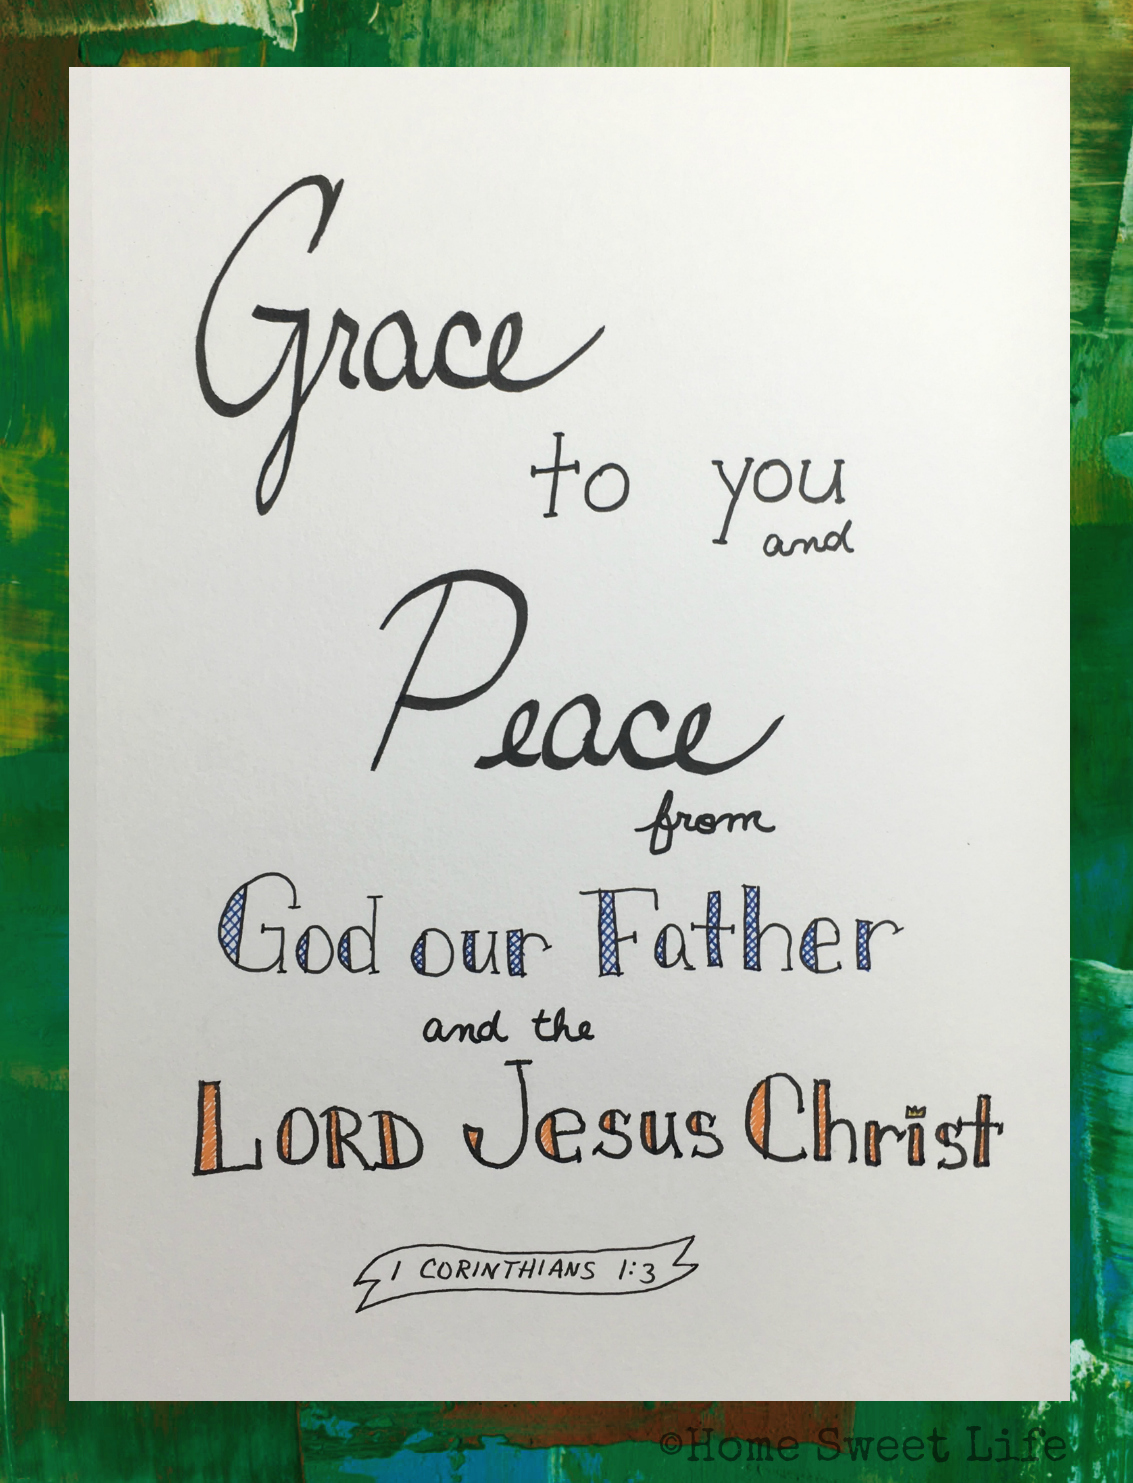 Grace
to you
and
Peace
from
God our Father
and the
LORD Jesus Christ
1 CORINTHIANS 1:3
©Home Sweet Life